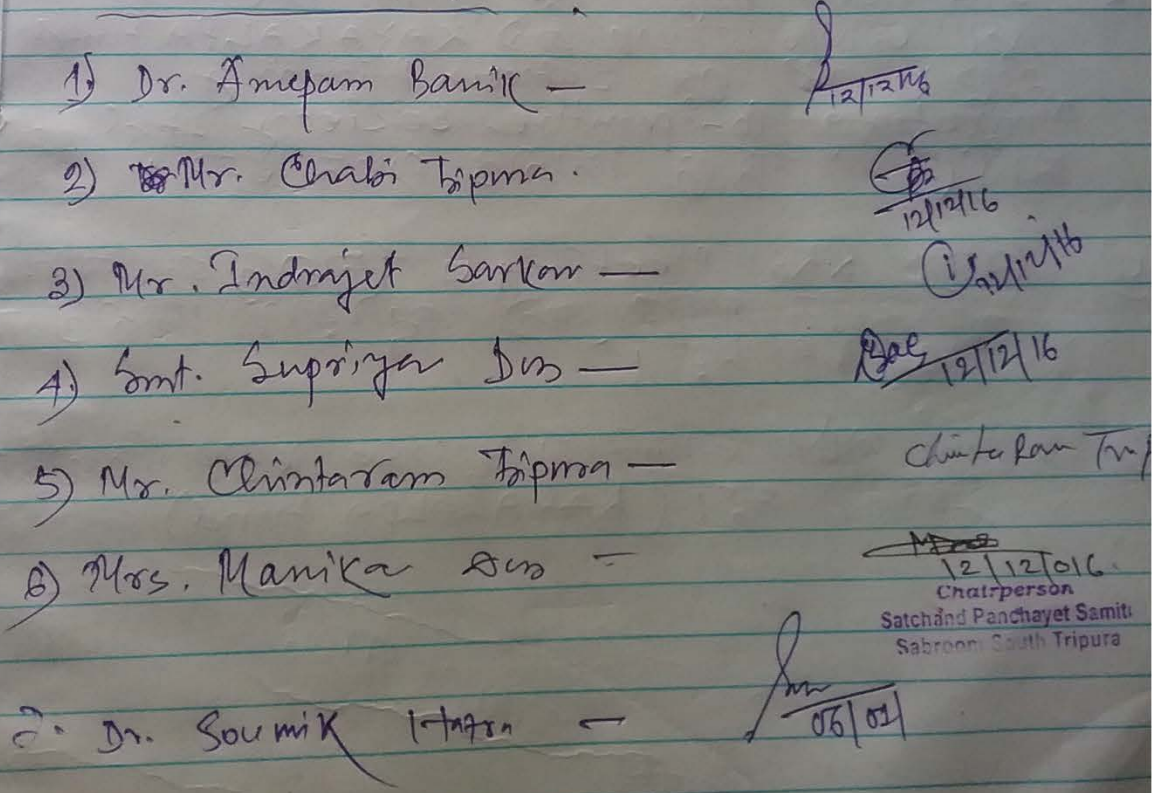 1) Dr. Anupam Banik — 12/12/16
2) Mr. Chabi Tripura. 12/12/16
3) Mr. Indrajet Sarkar — 12/12/16
4) Smt. Supriya Das — Das 12/12/16
5) Mr. Chintaram Tripura — Chinta Ram Trip
6) Mrs. Manika Das = 12/12/016.
Chairperson
Satchand Panchayet Samiti
Sabroom South Tripura
Dr. Soumik Hazra — 06/01/